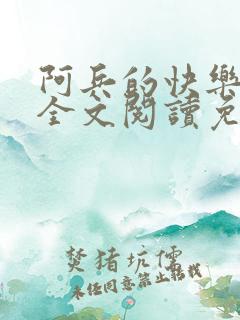 阿兵的快樂
全文閱讀免
焚猪坑儒
未经同意禁止转载